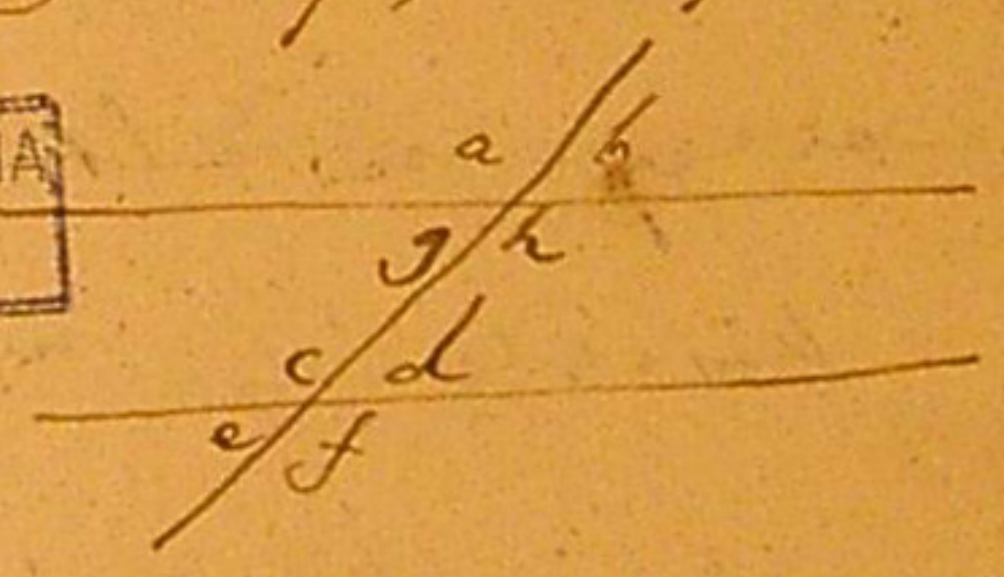 a b
g h
c d
e f